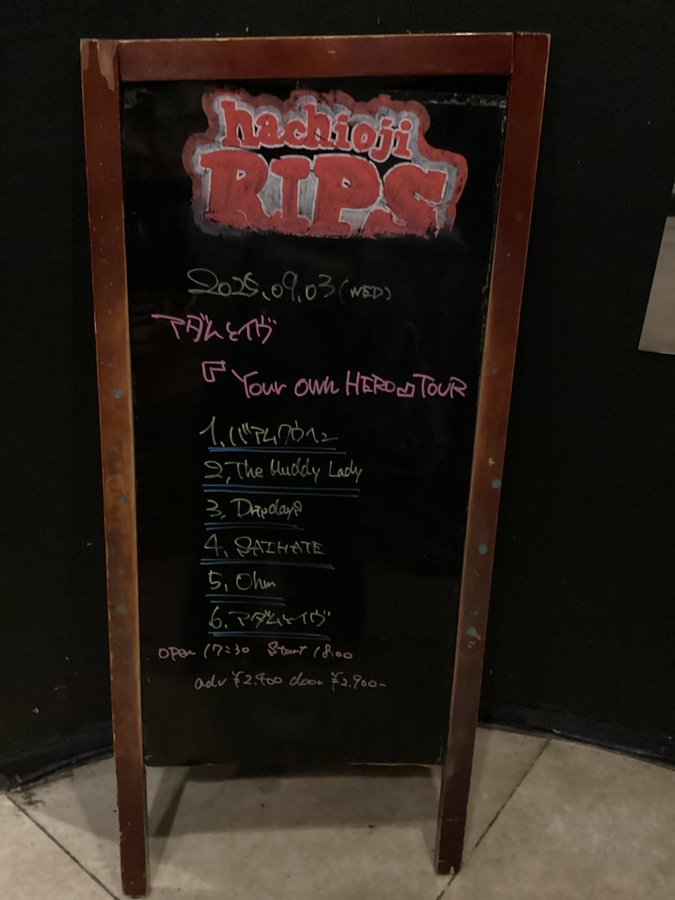 hachioji
RIPS
2025.09.03 (WED)
アダムとイヴ
『Your own HERO』TOUR
1. バアムクウヘン
2. The Muddy Lady
3.
4. SAIHATE
5. Ohm
6. アダムとイヴ
open 17:30 Start 18:00
adv ¥2.400 door ¥2.900-